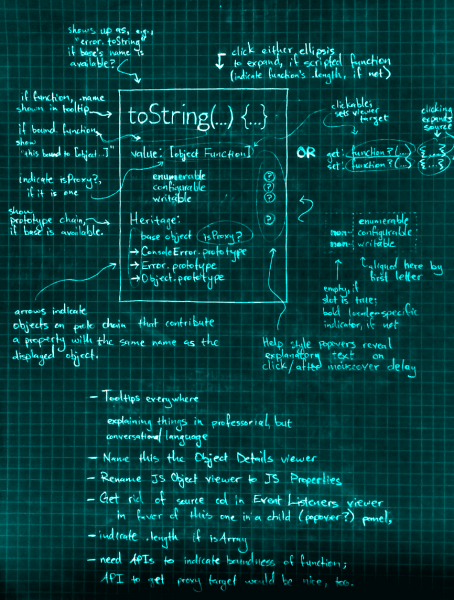 shows up as, e.g.,
"error.toString"
if base's name is
available?
click either ellipsis
to expand, if scripted function
(indicate function's .length, if not)
if function, .name
shown in tooltip
if bound function,
show
"this bound to [object…]"
indicate isProxy?,
if it is one
show
prototype chain,
if base is available.
toString(…) {…}
value: [object Function]
enumerable ?
configurable ?
writable ?
Heritage: ?
base object isProxy?
→ ConsoleError.prototype
→ Error.prototype
→ Object.prototype
clickable;
sets viewer
target
clicking
expands
source
OR
get: function?(…) {…}
set: function?(…) {…}
enumerable
non- configurable
non- writable
aligned here by
first letter
empty, if
slot is true;
bold locale-specific
indicator, if not
arrows indicate
objects on proto chain that contribute
a property with the same name as the
displayed object.
Help style popovers reveal
explanatory text on
click/after mouseover delay
- Tooltips everywhere
explaining things in professorial, but
conversational language
- Name this the Object Details viewer
- Rename JS Object viewer to JS Properties
- Get rid of source col in Event Listeners viewer
in favor of this one in a child (popover?) panel,
- indicate .length if isArray
- need APIs to indicate boundness of function;
API to get proxy target would be nice, too.